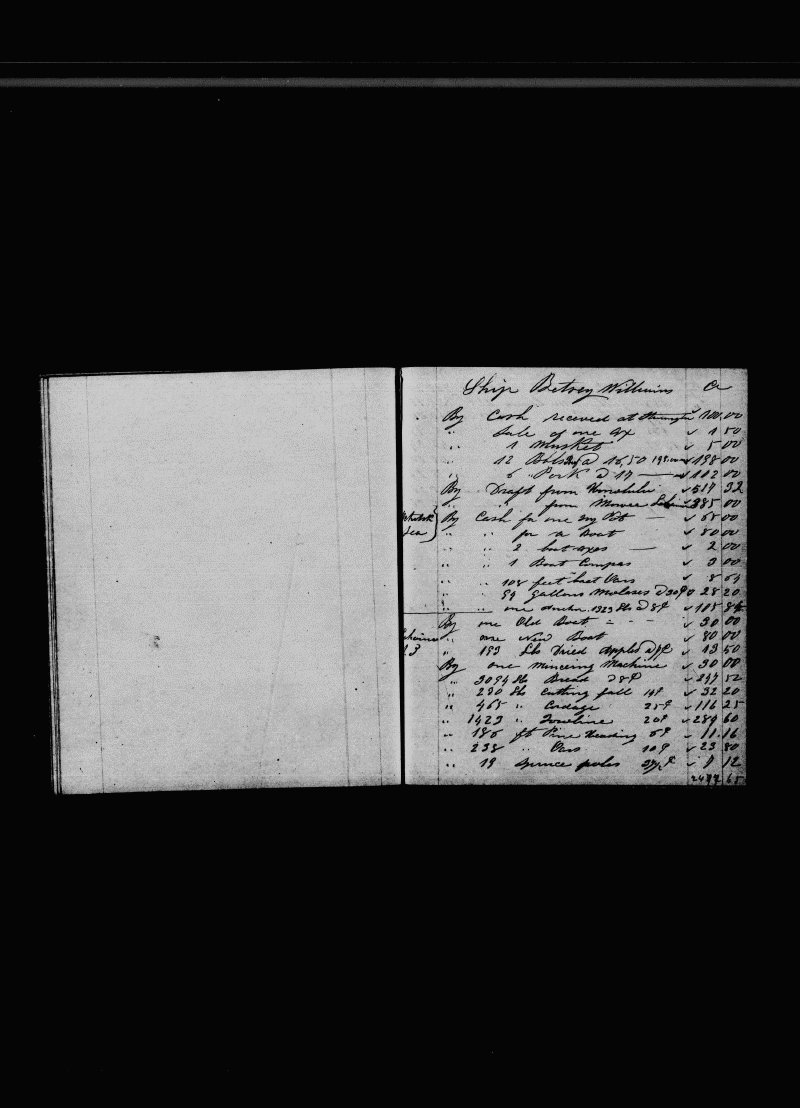 Ship Betsey Williams Cr
By Cash received at 100.00
" Sale of one Ax 1 50
" 1 Musket 5 00
" 12 Bbls @ 16,50 198 00
" 6 " Pork @ 17 — 102 00
By Draft from Honolulu 517 32
" " from Mowee 385 00
Sea } By Cash for one Pot — 65 00
" " for a Boat 80 00
" " 2 boat axes — 2 00
" " 1 Boat Compas 3 00
" " 108 feet boat Oars 8 64
" " 94 gallons Molases @ 30¢ 28 20
" " one anchor 1323 lbs @ 8¢ 105 84
By one Old Boat " - - 30 00
" one New Boat 80 00
13 " 193 Lbs Dried Apples @ 7¢ 13 50
By one Mincing Machine 30 00
" 3094 lbs Bread @ 8¢ 247 52
" 230 lbs Cutting fall 14¢ 32 20
" 465 " Cordage 25¢ 116 25
" 1423 " Towline 20¢ 284 60
" 186 ft Pine Heading 6¢ 11.16
" 238 " Oars 10¢ 23 80
" 19 Spruce poles 12
2477 65